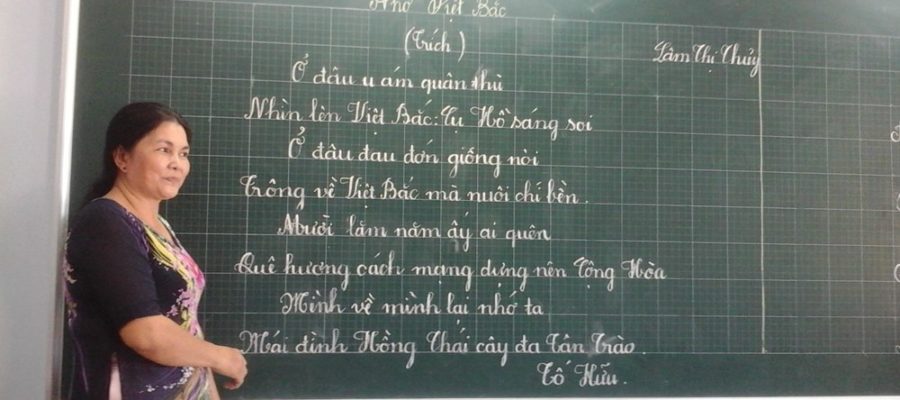 Nhớ Việt Bắc
(Trích)
Lâm Thị Thủy
Ở đâu u ám quân thù
Nhìn lên Việt Bắc: Cụ Hồ sáng soi
Ở đâu đau đớn giống nòi
Trông về Việt Bắc mà nuôi chí bền.
Mười lăm năm ấy ai quên
Quê hương cách mạng dựng nên Cộng Hòa
Mình về mình lại nhớ ta
Mái đình Hồng Thái cây đa Tân Trào.
Tố Hữu.